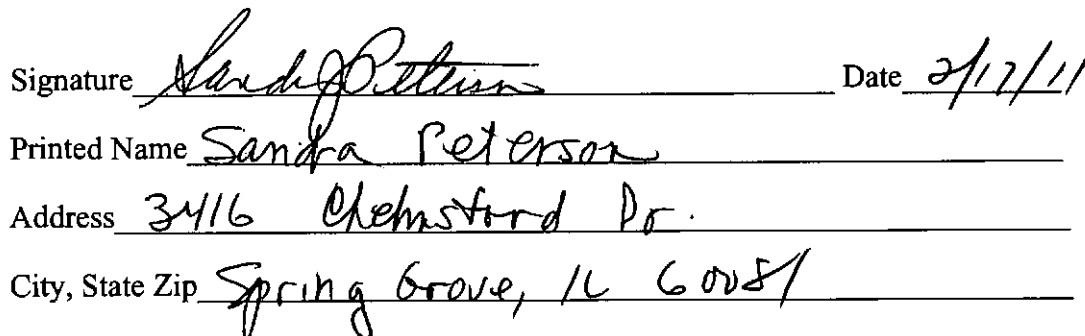 Signature Sandy J Peterson Date 2/17/11
Printed Name Sandra Peterson
Address 3416 Chelmsford Dr.
City, State Zip Spring Grove, IL 60081